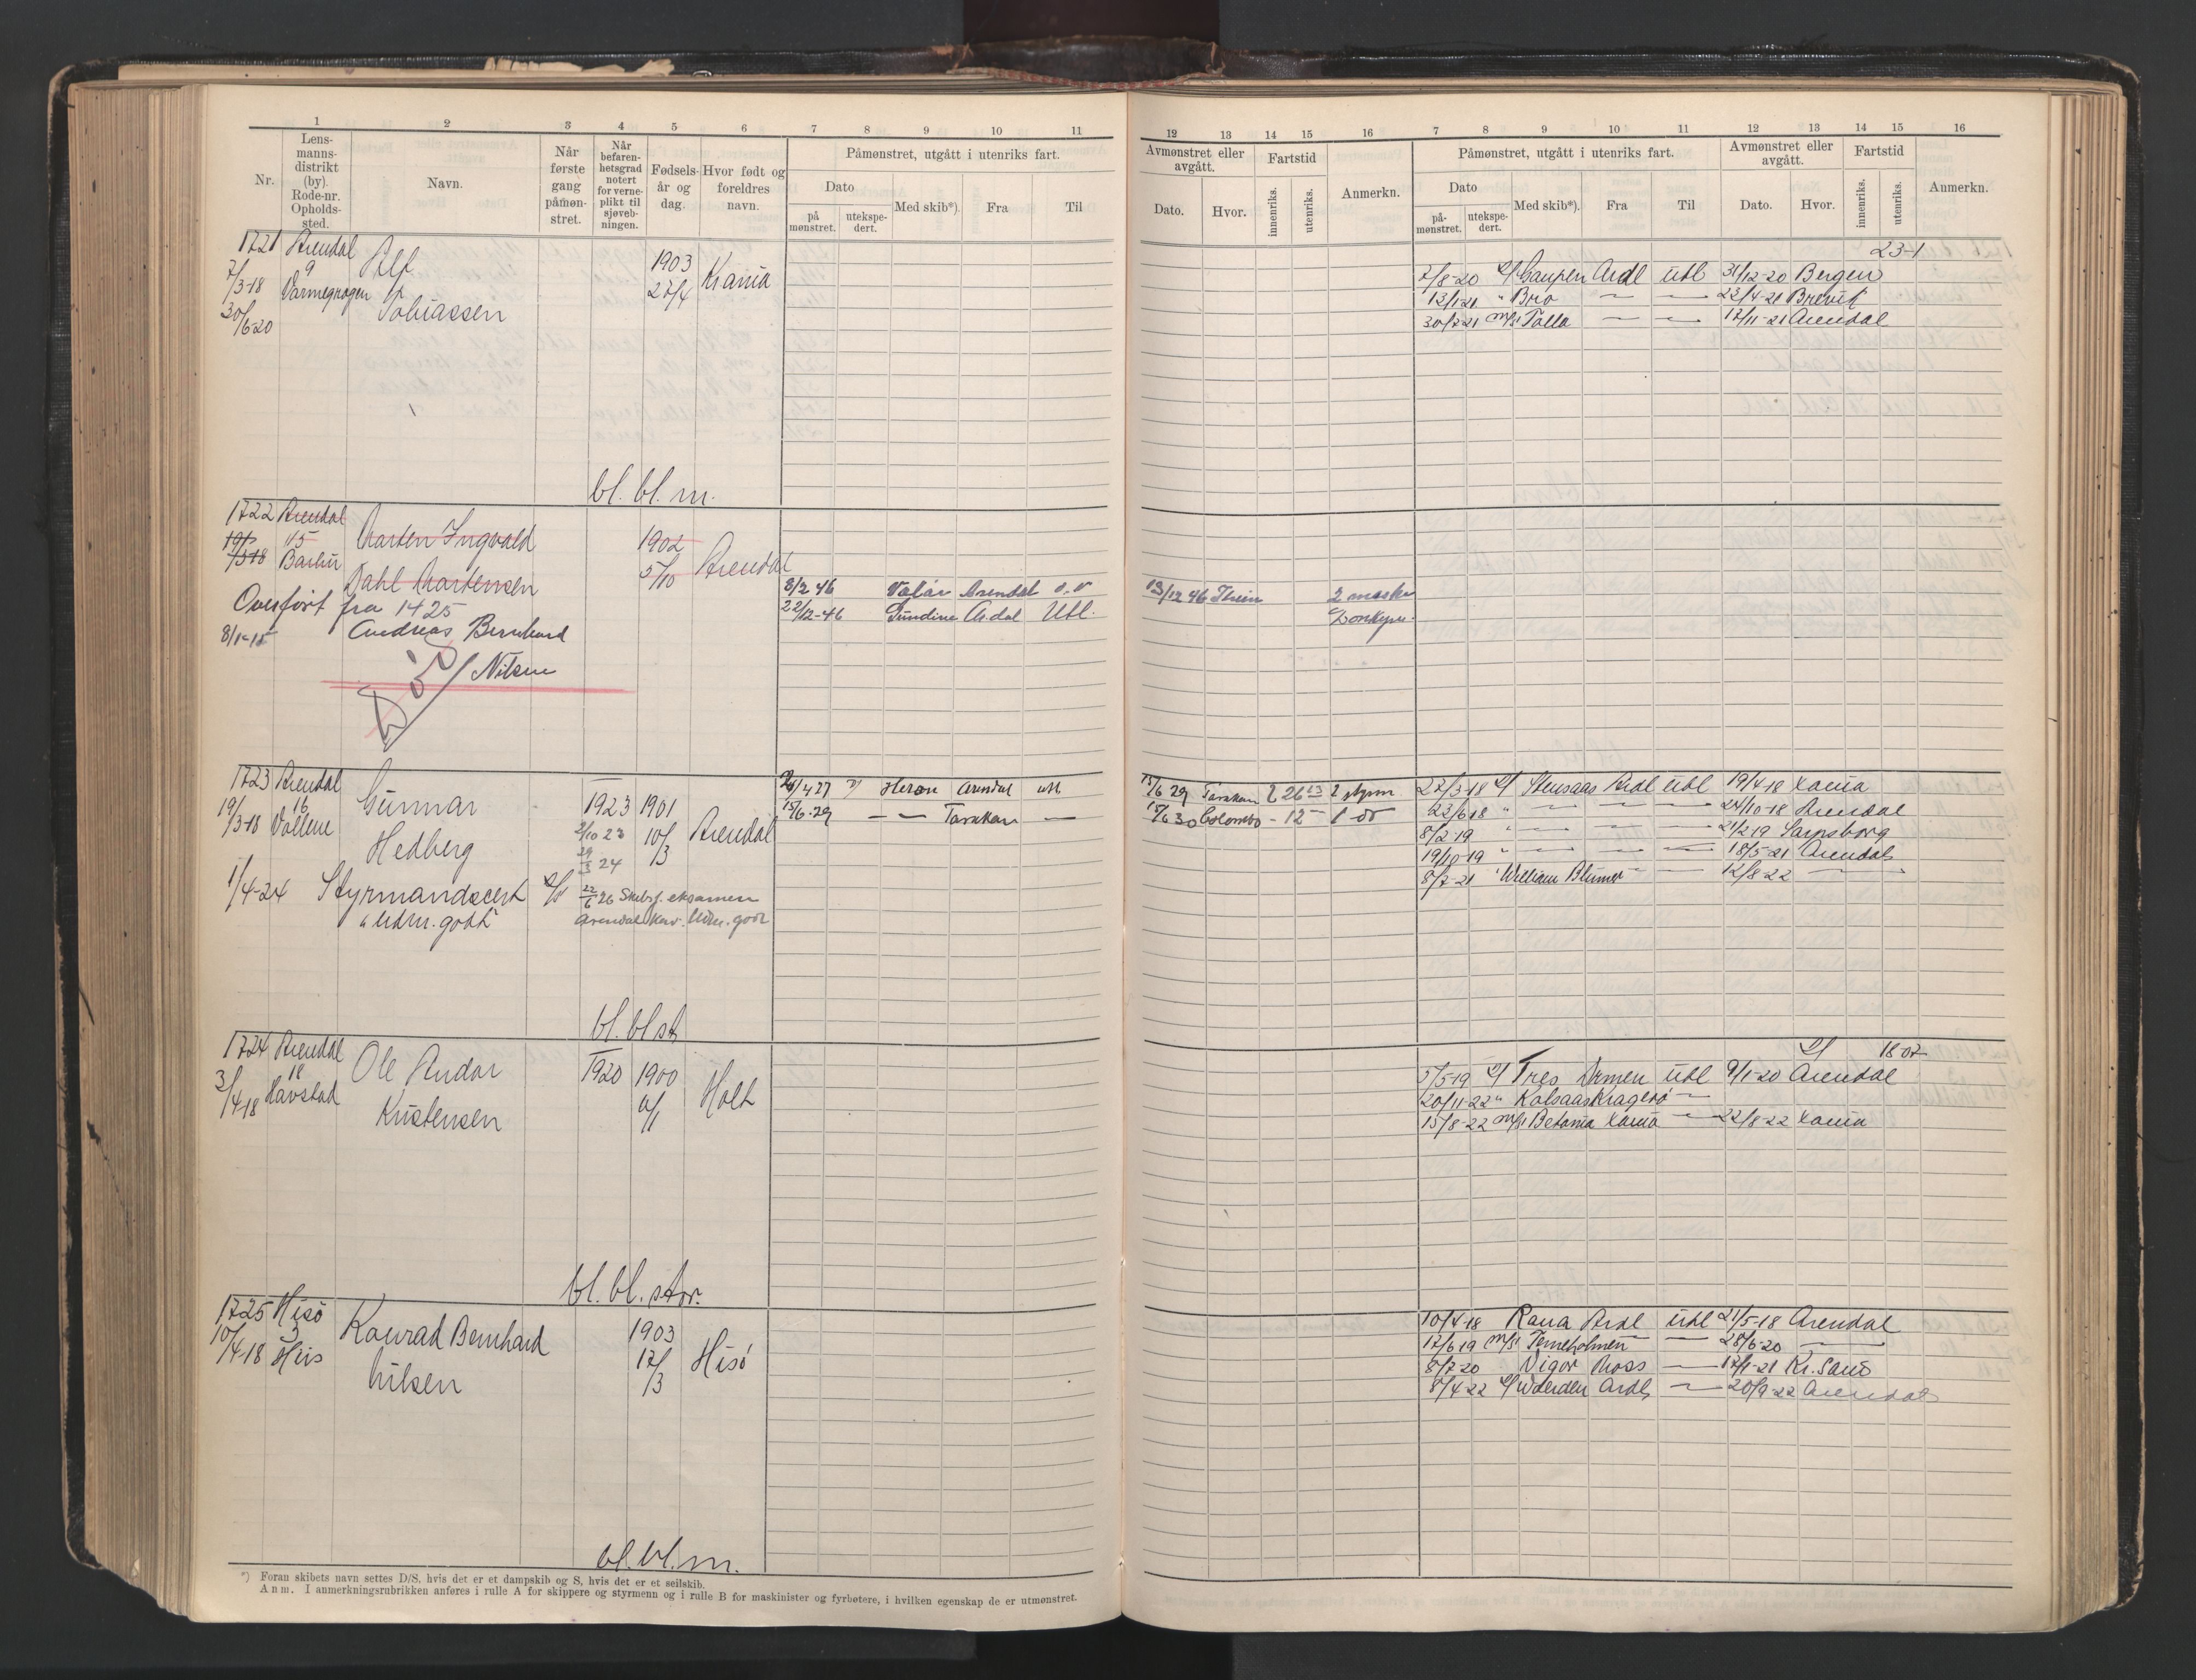 1 2 3 4 5 6 7 8 9 10 11
Nr.
Lensmannsdistrikt (by). Rode-nr. Opholdssted.
Navn.
Når første gang påmønstret.
Når befarenhetsgrad notert for verneplikt til sjøvebningen.
Fødselsår og dag.
Hvor født og foreldres navn.
Påmønstret, utgått i utenriks fart.
Dato
på mønstret.
utekspedert.
Med skib*).
Fra
Til
12 13 14 15 16 7 8 9 10 11 12 13 14 15 16
Avmønstret eller avgått.
Dato.
Hvor.
Fartstid
innenriks.
utenriks.
Anmerkn.
Påmønstret, utgått i utenriks fart.
Dato
påmønstret.
utekspedert.
Med skib*).
Fra
Til
Avmønstret eller avgått.
Dato.
Hvor.
Fartstid
innenriks.
utenriks.
Anmerkn.
1721 Arendal
7/3-18 9
30/6-20
Alf
Tobiassen
1903
27/4
Krania
bl. bl. m.
23-1
7/8-20 Gaupen Ardl utl 31/12-20 Bergen
13/1-21 " Bro — — 23/4-21 Brevik
30/7-21 m/s Tolla — — 17/11-21 Arendal
1722 Arendal
19/3-18 45
Barbu
Marten Ingvald
Dahl Martensen
1902
5/10
Arendal
Overført fra 1425
8/1-15 Andreas Bernhard
Nilsen
Død
8/2 46 Arendal
22/12-46 Gundine Ardal Utl.
13/12 46
2 mask
Donkeym.
1723 Arendal
19/3-18 16
Gunnar
Hedberg
1923 1901
2/10 23 10/3
29/3 24
Arendal
1/4-24 Styrmandscert
" udm. godt
22/6 26 Skibsf. eksamen
Arendal Kar. Udm. godt
bl. bl st
26/4 27 Heron Arendal utl
15/6-29 — — Tarakan —
15/6 29 Tarakan 2 26 2 styrm
15/6 30 Colombo - 12 - 1 do
22/3-18 Stensaas Ardl utl 19/4-18 Xania
23/6 18 " — — — 24/10-18 Arendal
8/2-19 " — — — 21/2-19 Sarpsborg
19/10-19 " — — — 18/5-21 Arendal
8/7-21 " William Blumer — — 12/8-22 —
1724 Arendal
3/4-18 18
Havstad
Ole Andor
Kristensen
1920 1900
Holt
bl. bl. stor.
18-07
5/5-19 Tres utl 9/1-20 Arendal
20/11-22 " Kolsaas Kragerø —
15/8-22 m/s Betania Xania — 22/8-22 Xania
1725 Hisö
10/4-18 3
His
Konrad Bernhard
Nilsen
1903
17/3
Hisö
bl. bl. m.
10/4-18 Rana Ardl utl 21/5-18 Arendal
17/6 19 m/s Terneholmen — 28/6-20 —
8/7-20 Vigor Moss — 17/1-21 Kr. Sand
8/4-22 Ardl — 20/9-22 Arendal
*) Foran skibets navn settes D/S, hvis det er et dampskib og S, hvis det er et seilskib.
Anm. I anmerkningsrubrikken anføres i rulle A for skippere og styrmenn og i rulle B for maskinister og fyrbøtere, i hvilken egenskap de er utmønstret.